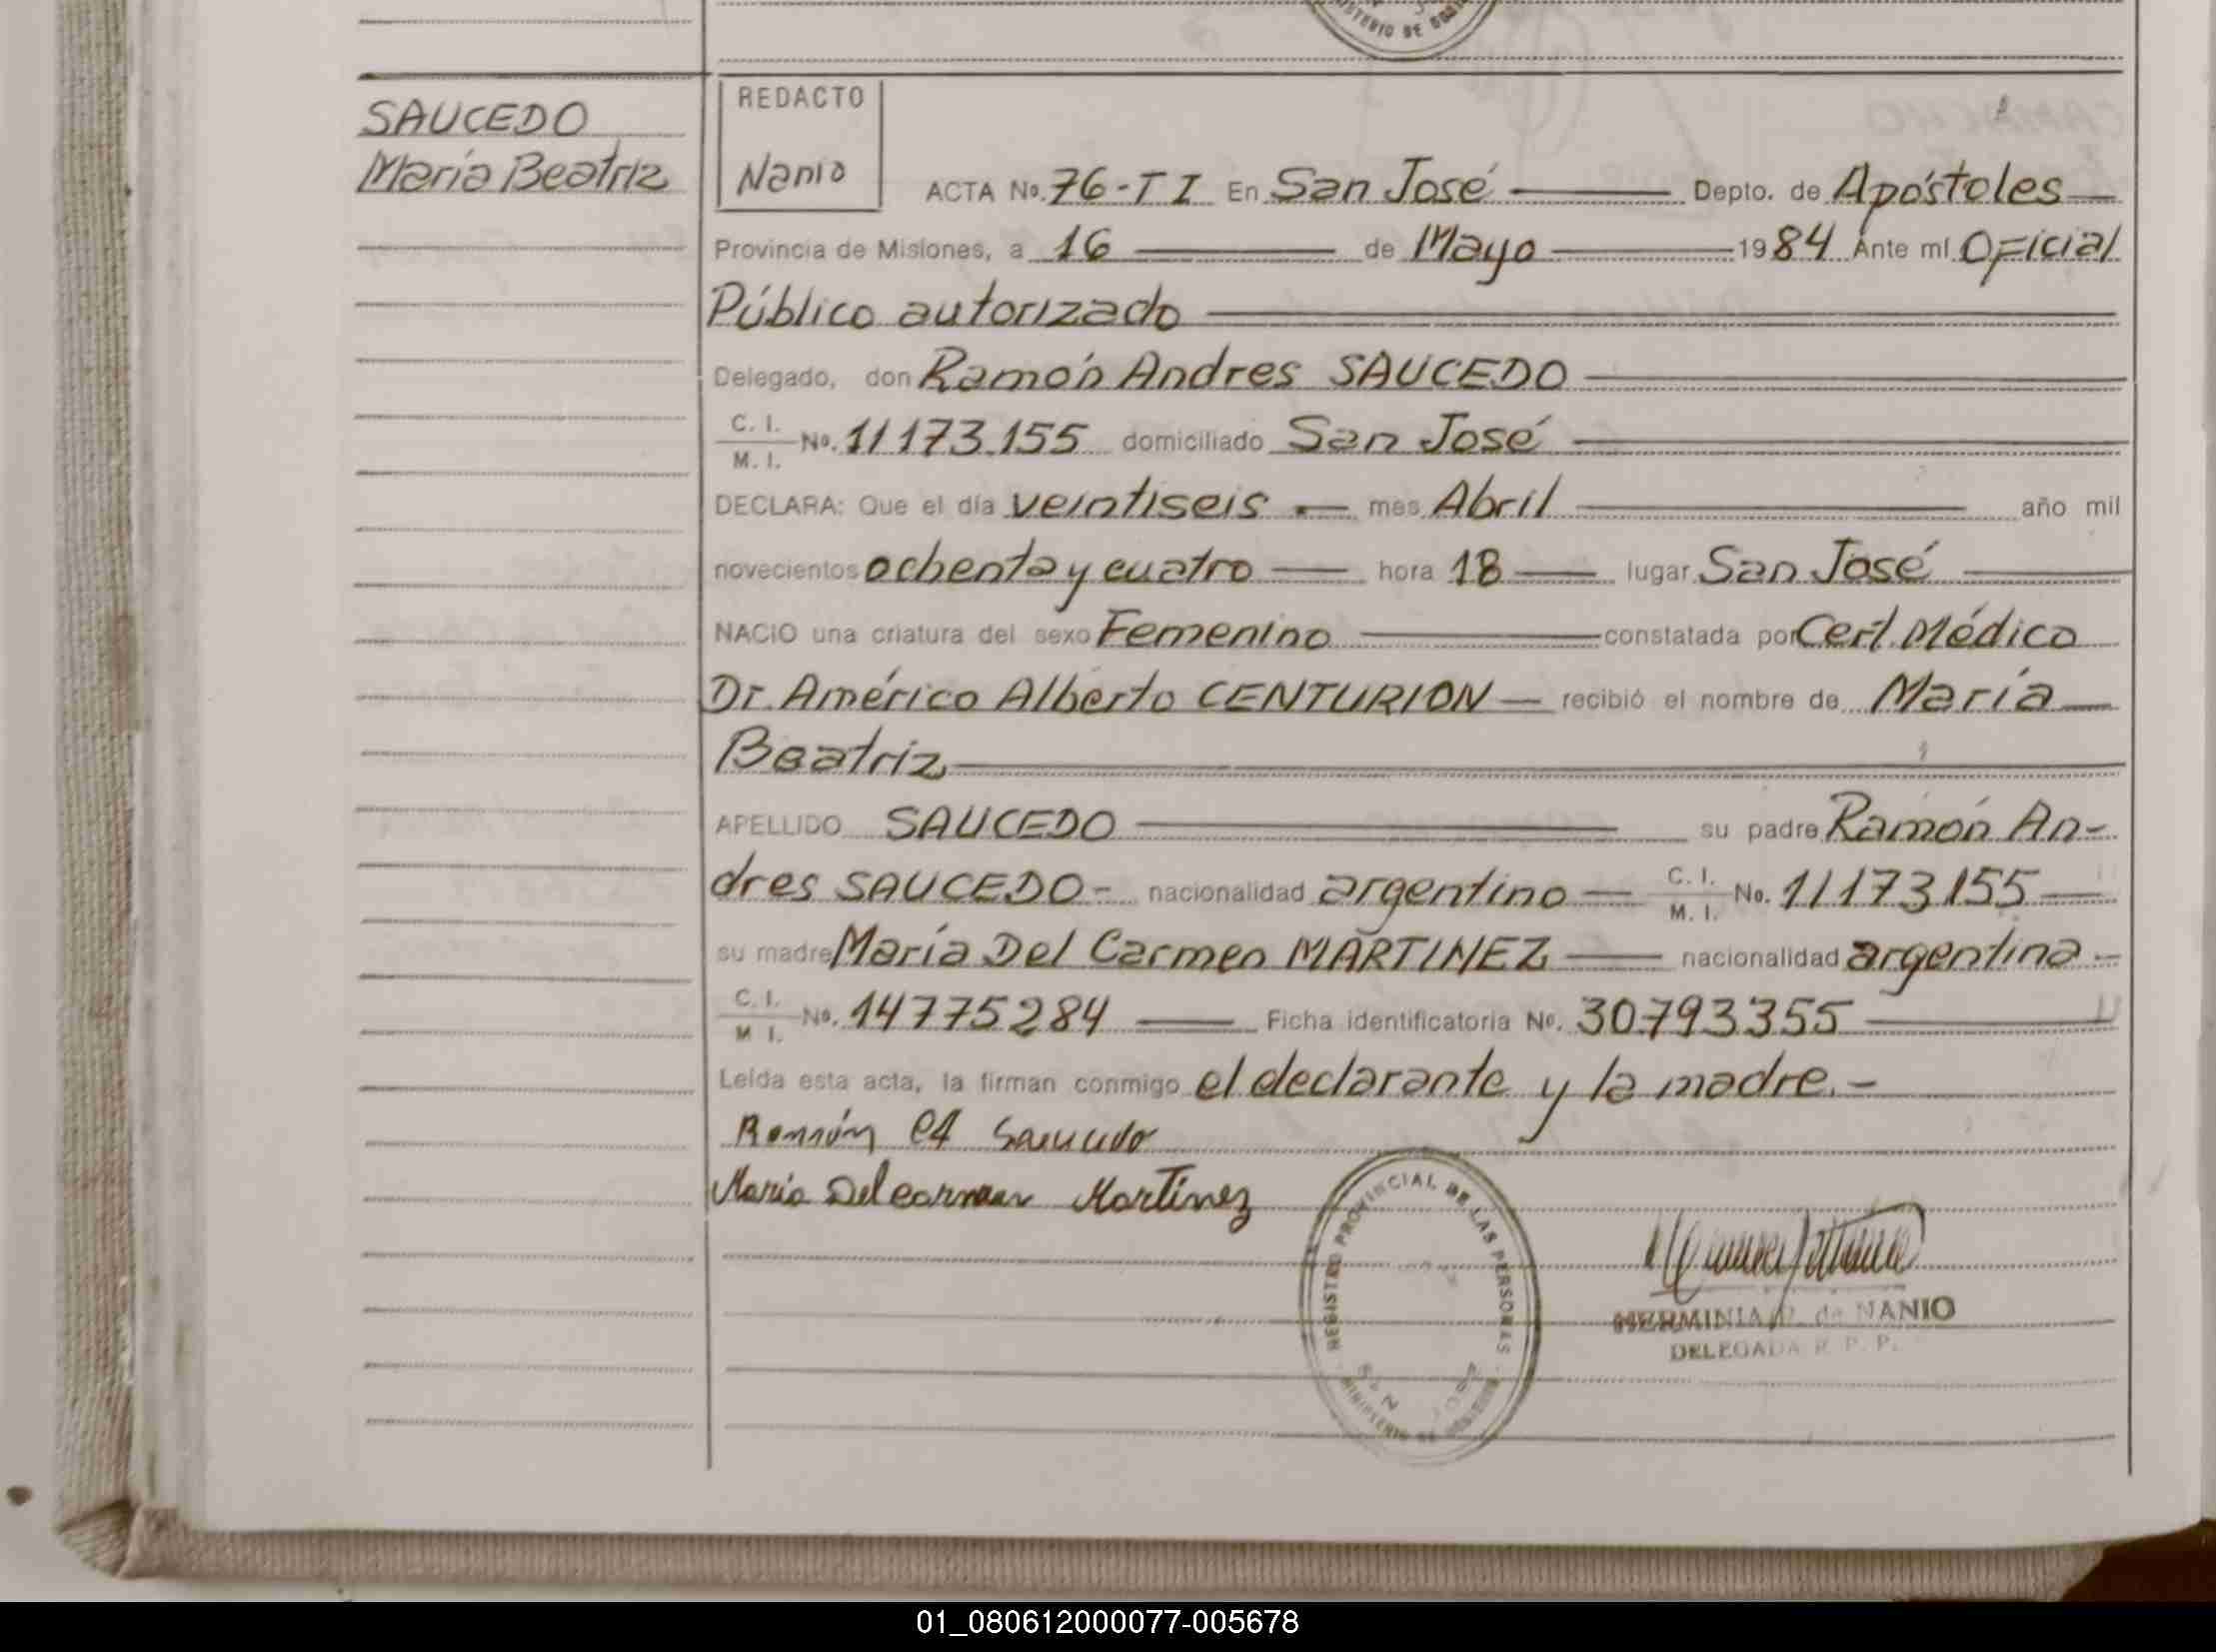 MINISTERIO DE GOBIERNO
SAUCEDO
María Beatriz
REDACTO
Nanio
ACTA No. 76-T I En San José Depto. de Apóstoles
Provincia de Misiones, a 16 de Mayo 1984 Ante mí Oficial
Público autorizado
Delegado, don Ramón Andres SAUCEDO
C. I.
M. I. No. 11173.155 domiciliado San José
DECLARA: Que el día veintiseis mes Abril año mil
novecientos ochenta y cuatro hora 18 lugar San José
NACIO una criatura del sexo Femenino constatada por Cert. Médico
Dr. Américo Alberto CENTURION recibió el nombre de María
Beatriz
APELLIDO SAUCEDO su padre Ramón An-
dres SAUCEDO- nacionalidad argentino C. I. M. I. No. 11173155
su madre María Del Carmen MARTINEZ nacionalidad argentina
C. I.
M I. No. 14775284 Ficha identificatoria No. 30793355
Leída esta acta, la firman conmigo el declarante y la madre.-
Ramón A Saucedo
Maria Del carmen Martinez
REGISTRO PROVINCIAL DE LAS PERSONAS
SAN JOSE
MINISTERIO DE GOBIERNO
HERMINIA de NANIO
DELEGADA R. P. P.
01_080612000077-005678